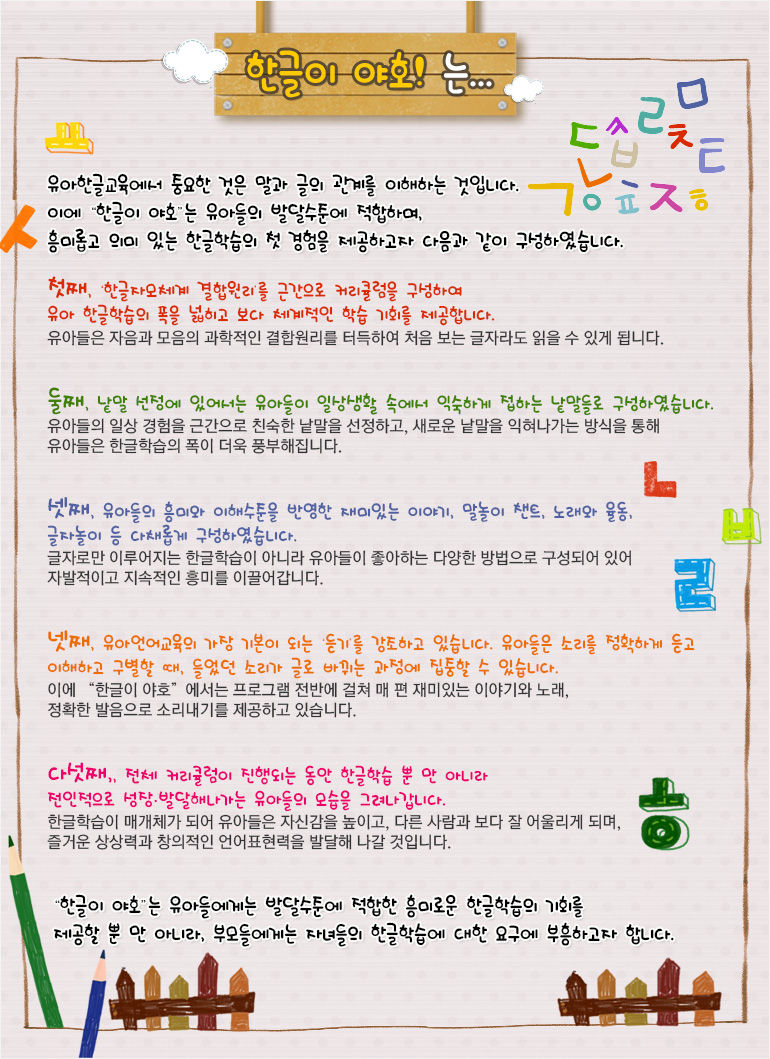 한글이 야호! 는...
ㄷ ㅅ ㄹ ㅁ
ㅂ ㅊ ㅌ
ㄱ ㅍ ㅈ ㅎ
유아한글교육에서 중요한 것은 말과 글의 관계를 이해하는 것입니다.
이에 “한글이 야호”는 유아들의 발달수준에 적합하며,
ㅅ
흥미롭고 의미 있는 한글학습의 첫 경험을 제공하고자 다음과 같이 구성하였습니다.
첫째, '한글자모체계 결합원리'를 근간으로 커리큘럼을 구성하여
유아 한글학습의 폭을 넓히고 보다 체계적인 학습 기회를 제공합니다.
유아들은 자음과 모음의 과학적인 결합원리를 터득하여 처음 보는 글자라도 읽을 수 있게 됩니다.
둘째, 낱말 선정에 있어서는 유아들이 일상생활 속에서 익숙하게 접하는 낱말들로 구성하였습니다.
유아들의 일상 경험을 근간으로 친숙한 낱말을 선정하고, 새로운 낱말을 익혀나가는 방식을 통해
유아들은 한글학습의 폭이 더욱 풍부해집니다.
ㄴ
셋째, 유아들의 흥미와 이해수준을 반영한 재미있는 이야기, 말놀이 챈트, 노래와 율동,
ㅂ
글자놀이 등 다채롭게 구성하였습니다.
글자로만 이루어지는 한글학습이 아니라 유아들이 좋아하는 다양한 방법으로 구성되어 있어
자발적이고 지속적인 흥미를 이끌어갑니다.
ㄹ
넷째, 유아언어교육의 가장 기본이 되는 '듣기'를 강조하고 있습니다. 유아들은 소리를 정확하게 듣고
이해하고 구별할 때, 들었던 소리가 글로 바뀌는 과정에 집중할 수 있습니다.
이에 “한글이 야호”에서는 프로그램 전반에 걸쳐 매 편 재미있는 이야기와 노래,
정확한 발음으로 소리내기를 제공하고 있습니다.
다섯째,, 전체 커리큘럼이 진행되는 동안 한글학습 뿐 만 아니라
전인적으로 성장·발달해나가는 유아들의 모습을 그려나갑니다.
한글학습이 매개체가 되어 유아들은 자신감을 높이고, 다른 사람과 보다 잘 어울리게 되며,
즐거운 상상력과 창의적인 언어표현력을 발달해 나갈 것입니다.
“한글이 야호”는 유아들에게는 발달수준에 적합한 흥미로운 한글학습의 기회를
제공할 뿐 만 아니라, 부모들에게는 자녀들의 한글학습에 대한 요구에 부흥하고자 합니다.